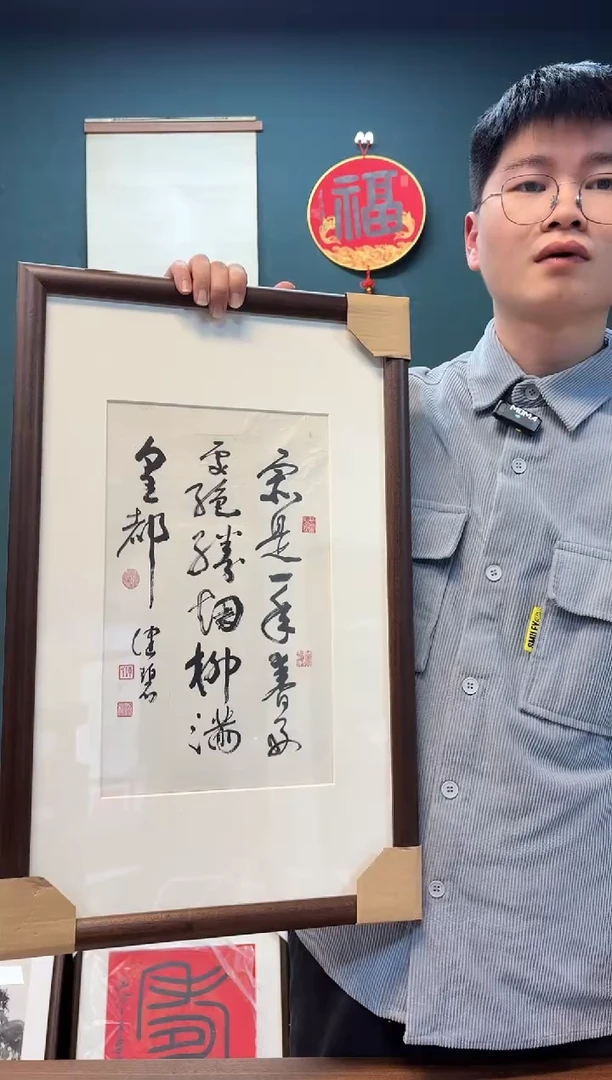 最是一年春好
处绝胜烟柳满
皇都
福
MOMA
SMILEY
寿